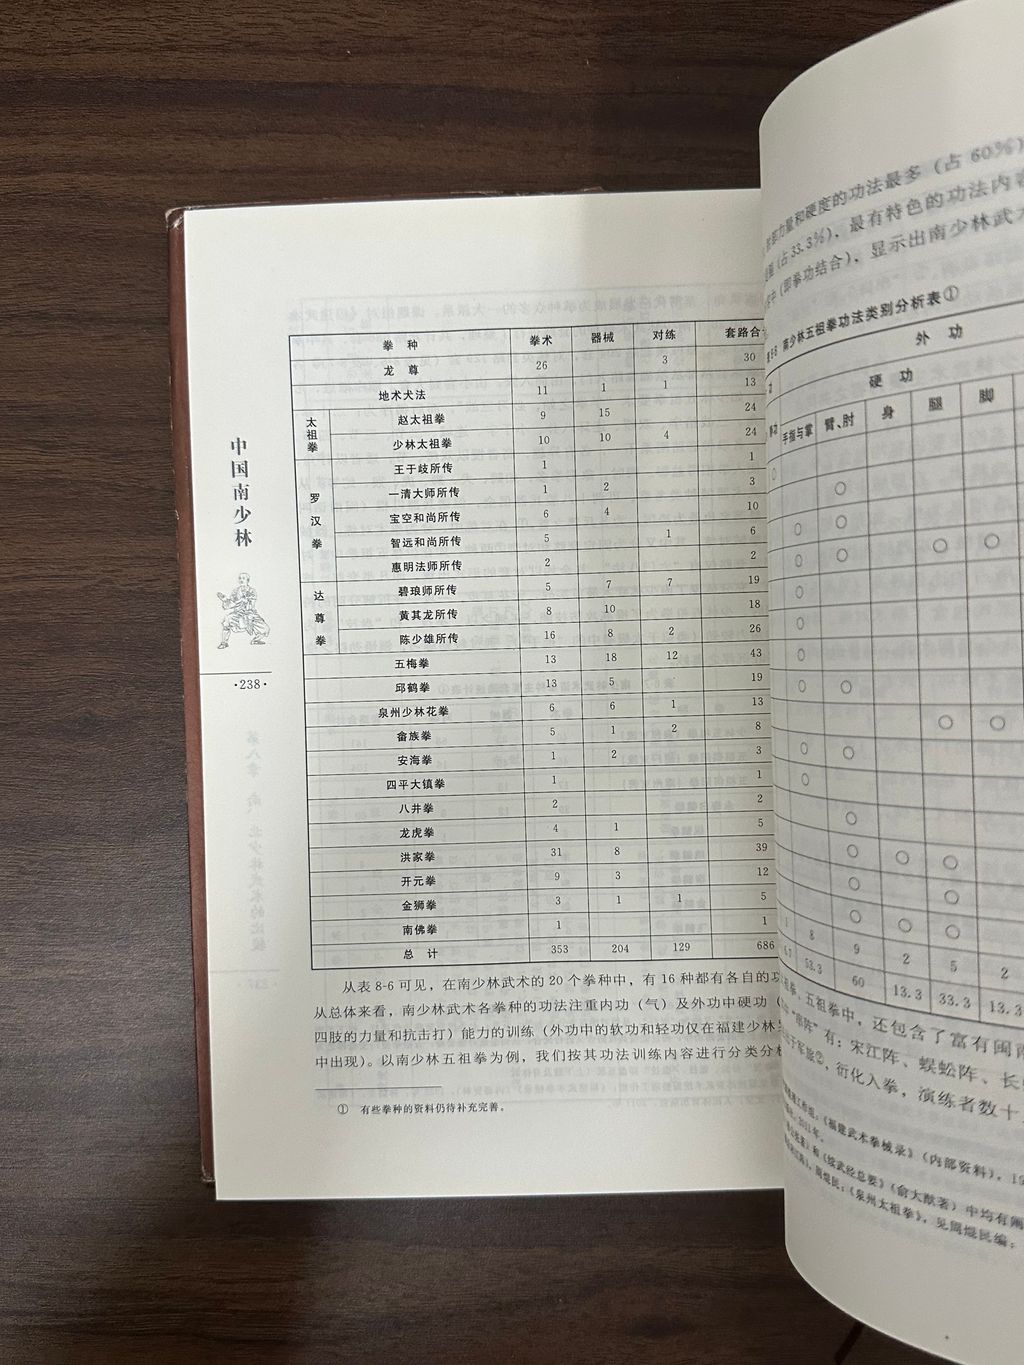 中国南少林
·238·
拳 种 拳术 器械 对练 套路合
龙 尊 26 3 30
地术犬法 11 1 1 13
太祖拳 赵太祖拳 9 15 24
少林太祖拳 10 10 4 24
罗汉拳 王于歧所传 1 1
一清大师所传 1 2 3
宝空和尚所传 6 4 10
智远和尚所传 5 1 6
惠明法师所传 2 2
达尊拳 碧琅师所传 5 7 7 19
黄其龙所传 8 10 18
陈少雄所传 16 8 2 26
五梅拳 13 18 12 43
邱鹤拳 13 5 19
泉州少林花拳 6 6 1 13
畲族拳 5 1 2 8
安海拳 1 2 3
四平大镇拳 1 1
八井拳 2 2
龙虎拳 4 1 5
洪家拳 31 8 39
开元拳 9 3 12
金狮拳 3 1 1 5
南佛拳 1 1
总 计 353 204 129 686
从表 8-6 可见，在南少林武术的 20 个拳种中，有 16 种都有各自的功
从总体来看，南少林武术各拳种的功法注重内功（气）及外功中硬功（
四肢的力量和抗击打）能力的训练（外功中的软功和轻功仅在福建少林
中出现）。以南少林五祖拳为例，我们按其功法训练内容进行分类分析
① 有些拳种的资料仍待补充完善。
力量和硬度的功法最多（占 60%）
（占 33.3%），最有特色的功法内容
中（即拳功结合），显示出南少林武
南少林五祖拳功法类别分析表①
外 功
硬 功
手指与掌 臂、肘 身 腿 脚
○
○
○ ○
○ ○ ○ ○
○
○
○
○ ○
○ ○
○ ○
○
○
○ ○ ○
○ ○
○ ○ ○
8 9 2 5 2
53.3 60 13.3 33.3 13.3
拳、五祖拳中，还包含了富有闽南
“阵” 有：宋江阵、蜈蚣阵、长
于军旅②，衍化入拳，演练者数十
：《福建武术拳械录》（内部资料），19
2011年。
和《续武经总要》（俞大猷著）中均有阐
周焜民：《泉州太祖拳》，见周焜民编：